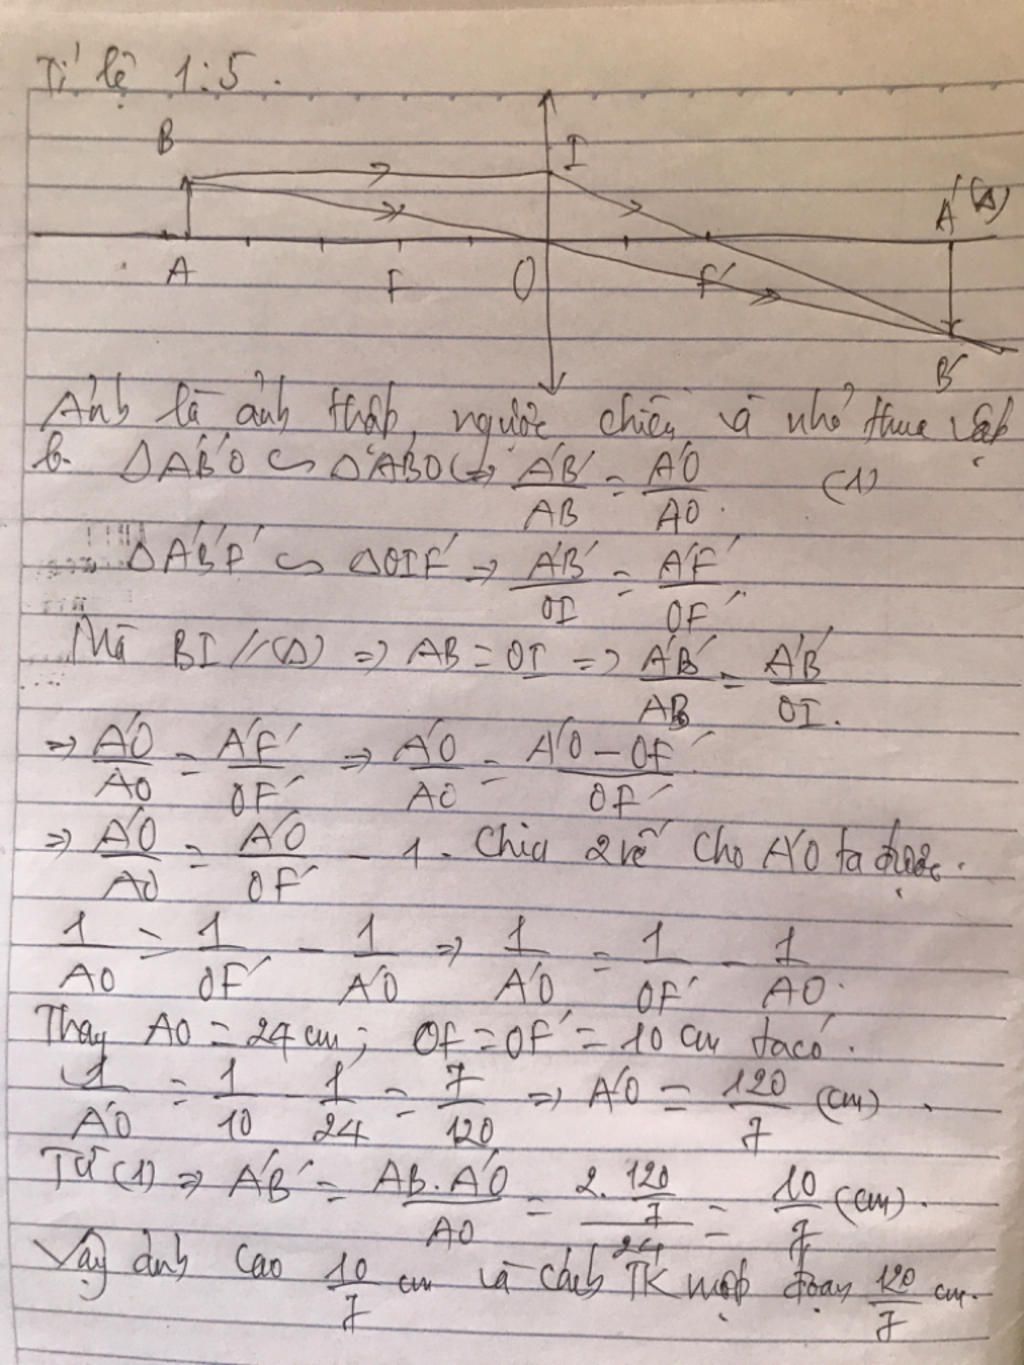 Tỉ lệ 1:5.
B I
A' (Δ)
A F O F'
B'
Ảnh là ảnh thật, ngược chiều và nhỏ hơn vật
b. ΔA'B'O ∽ ΔABO (=> A'B'/AB = A'O/AO. (1)
ΔA'B'F' ∽ ΔOIF' => A'B'/OI = A'F'/OF'
Mà BI // (Δ) => AB = OI => A'B'/AB = A'B'/OI.
=> A'O/AO = A'F'/OF' => A'O/AO = A'O - OF'/OF'
=> A'O/AO = A'O/OF' - 1. Chia 2 vế cho A'O ta được.
1/AO = 1/OF' - 1/A'O => 1/A'O = 1/OF' - 1/AO.
Thay AO = 24 cm; OF = OF' = 10 cm ta có.
1/A'O = 1/10 - 1/24 = 7/120 => A'O = 120/7 (cm).
Từ (1) => A'B' = AB.A'O/AO = 2.120/7/24 = 10/7 (cm).
Vậy ảnh cao 10/7 cm và cách TK một đoạn 120/7 cm.